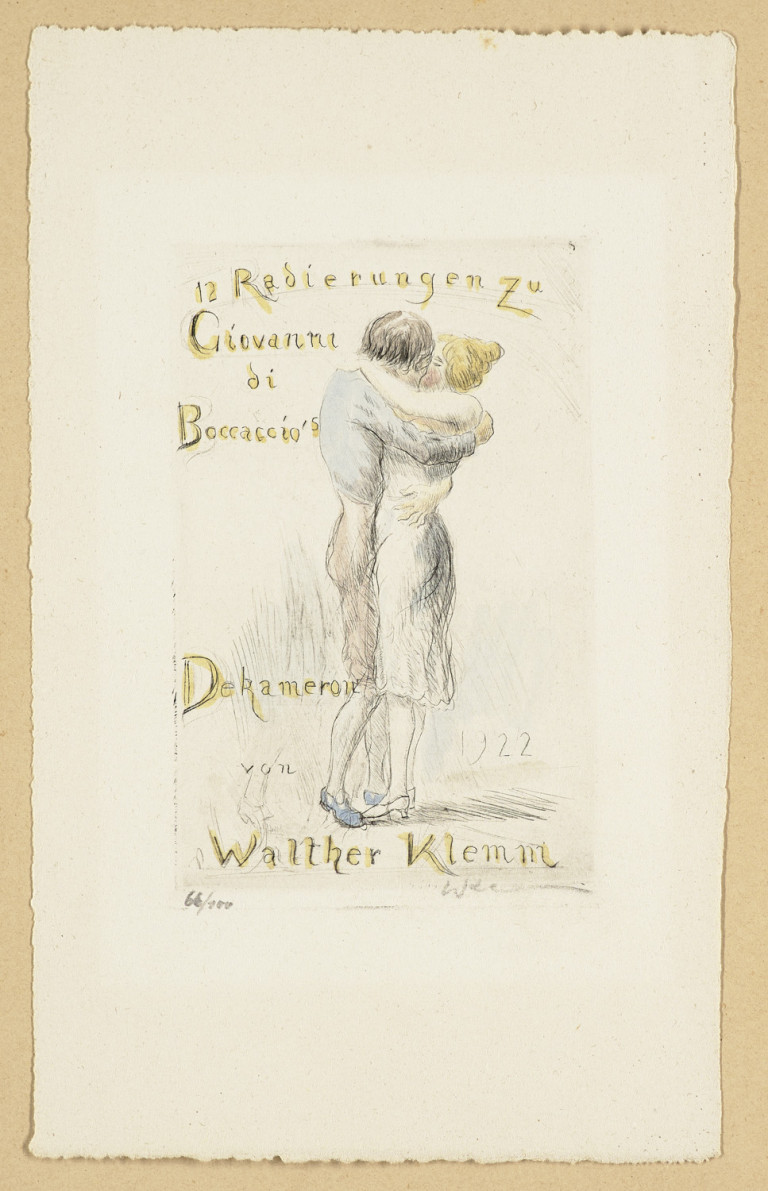 12 Radierungen zu
Giovanni
di
Boccaccio's
Dekameron
1922
von
Walther Klemm
66/200